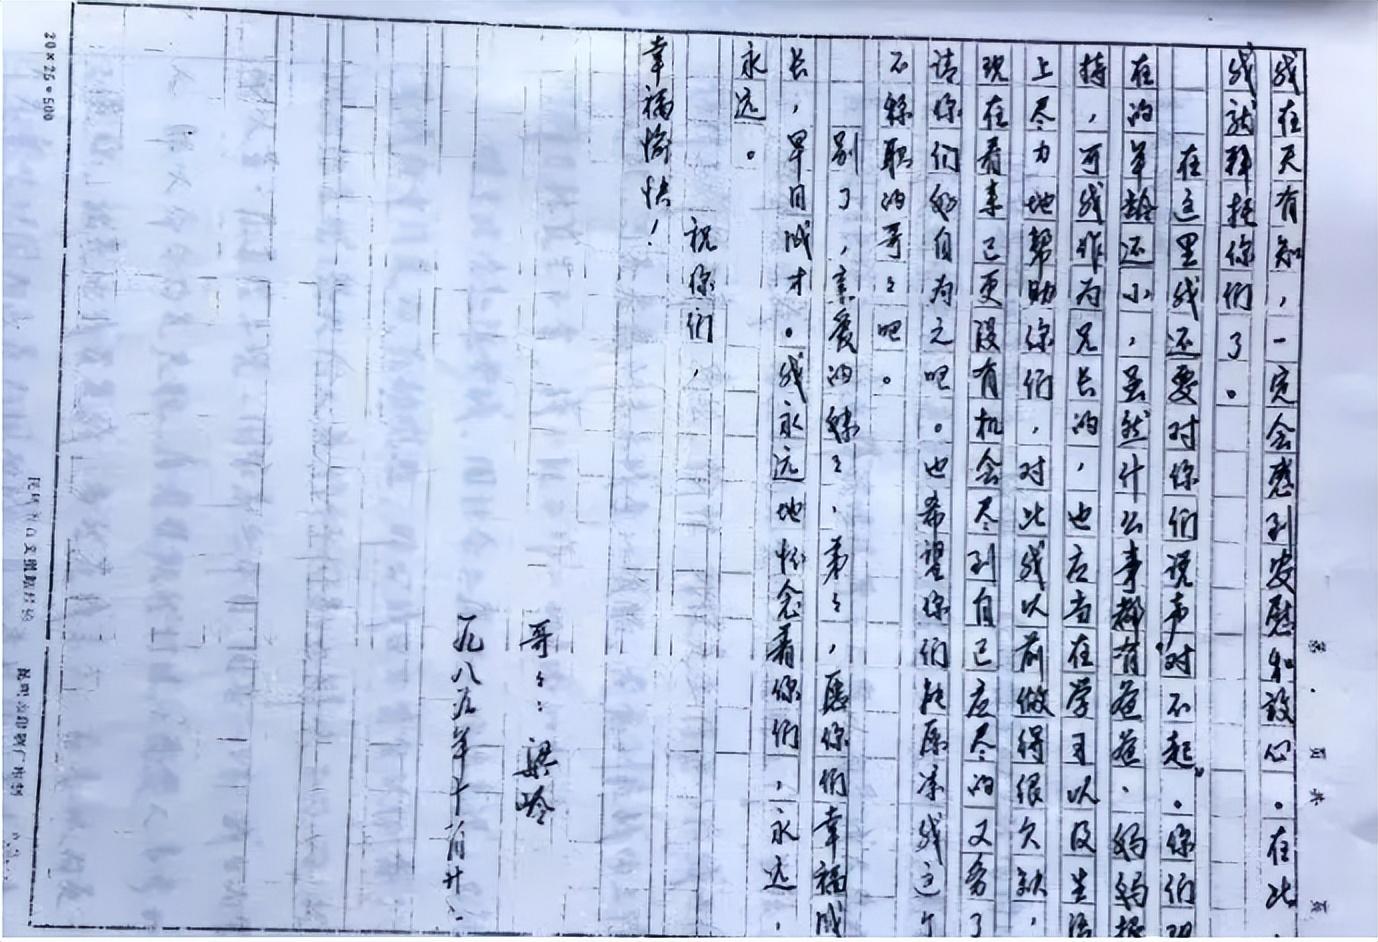 我在天有知，一定会感到安慰和放心。在此，
我就拜托你们了。
在这里我还要对你们说声“对不起”。你们现
在的年龄还小，虽然什么事都有爸爸、妈妈操
持，可我作为兄长的，也应当在学习以及生活
上尽力地帮助你们，对此我以前做得很欠缺，
现在看来已更没有机会尽到自己应尽的义务了
请你们好自为之吧。也希望你们能原谅我这个
不称职的哥々吧。
别了，亲爱的妹々、弟々，愿你们幸福成
长，早日成才。我永远地怀念着你们，永远，
永远。
祝你们，
幸福愉快！
哥々：梁
一九八五年十一月廿
20×25=500
第 页 共 页